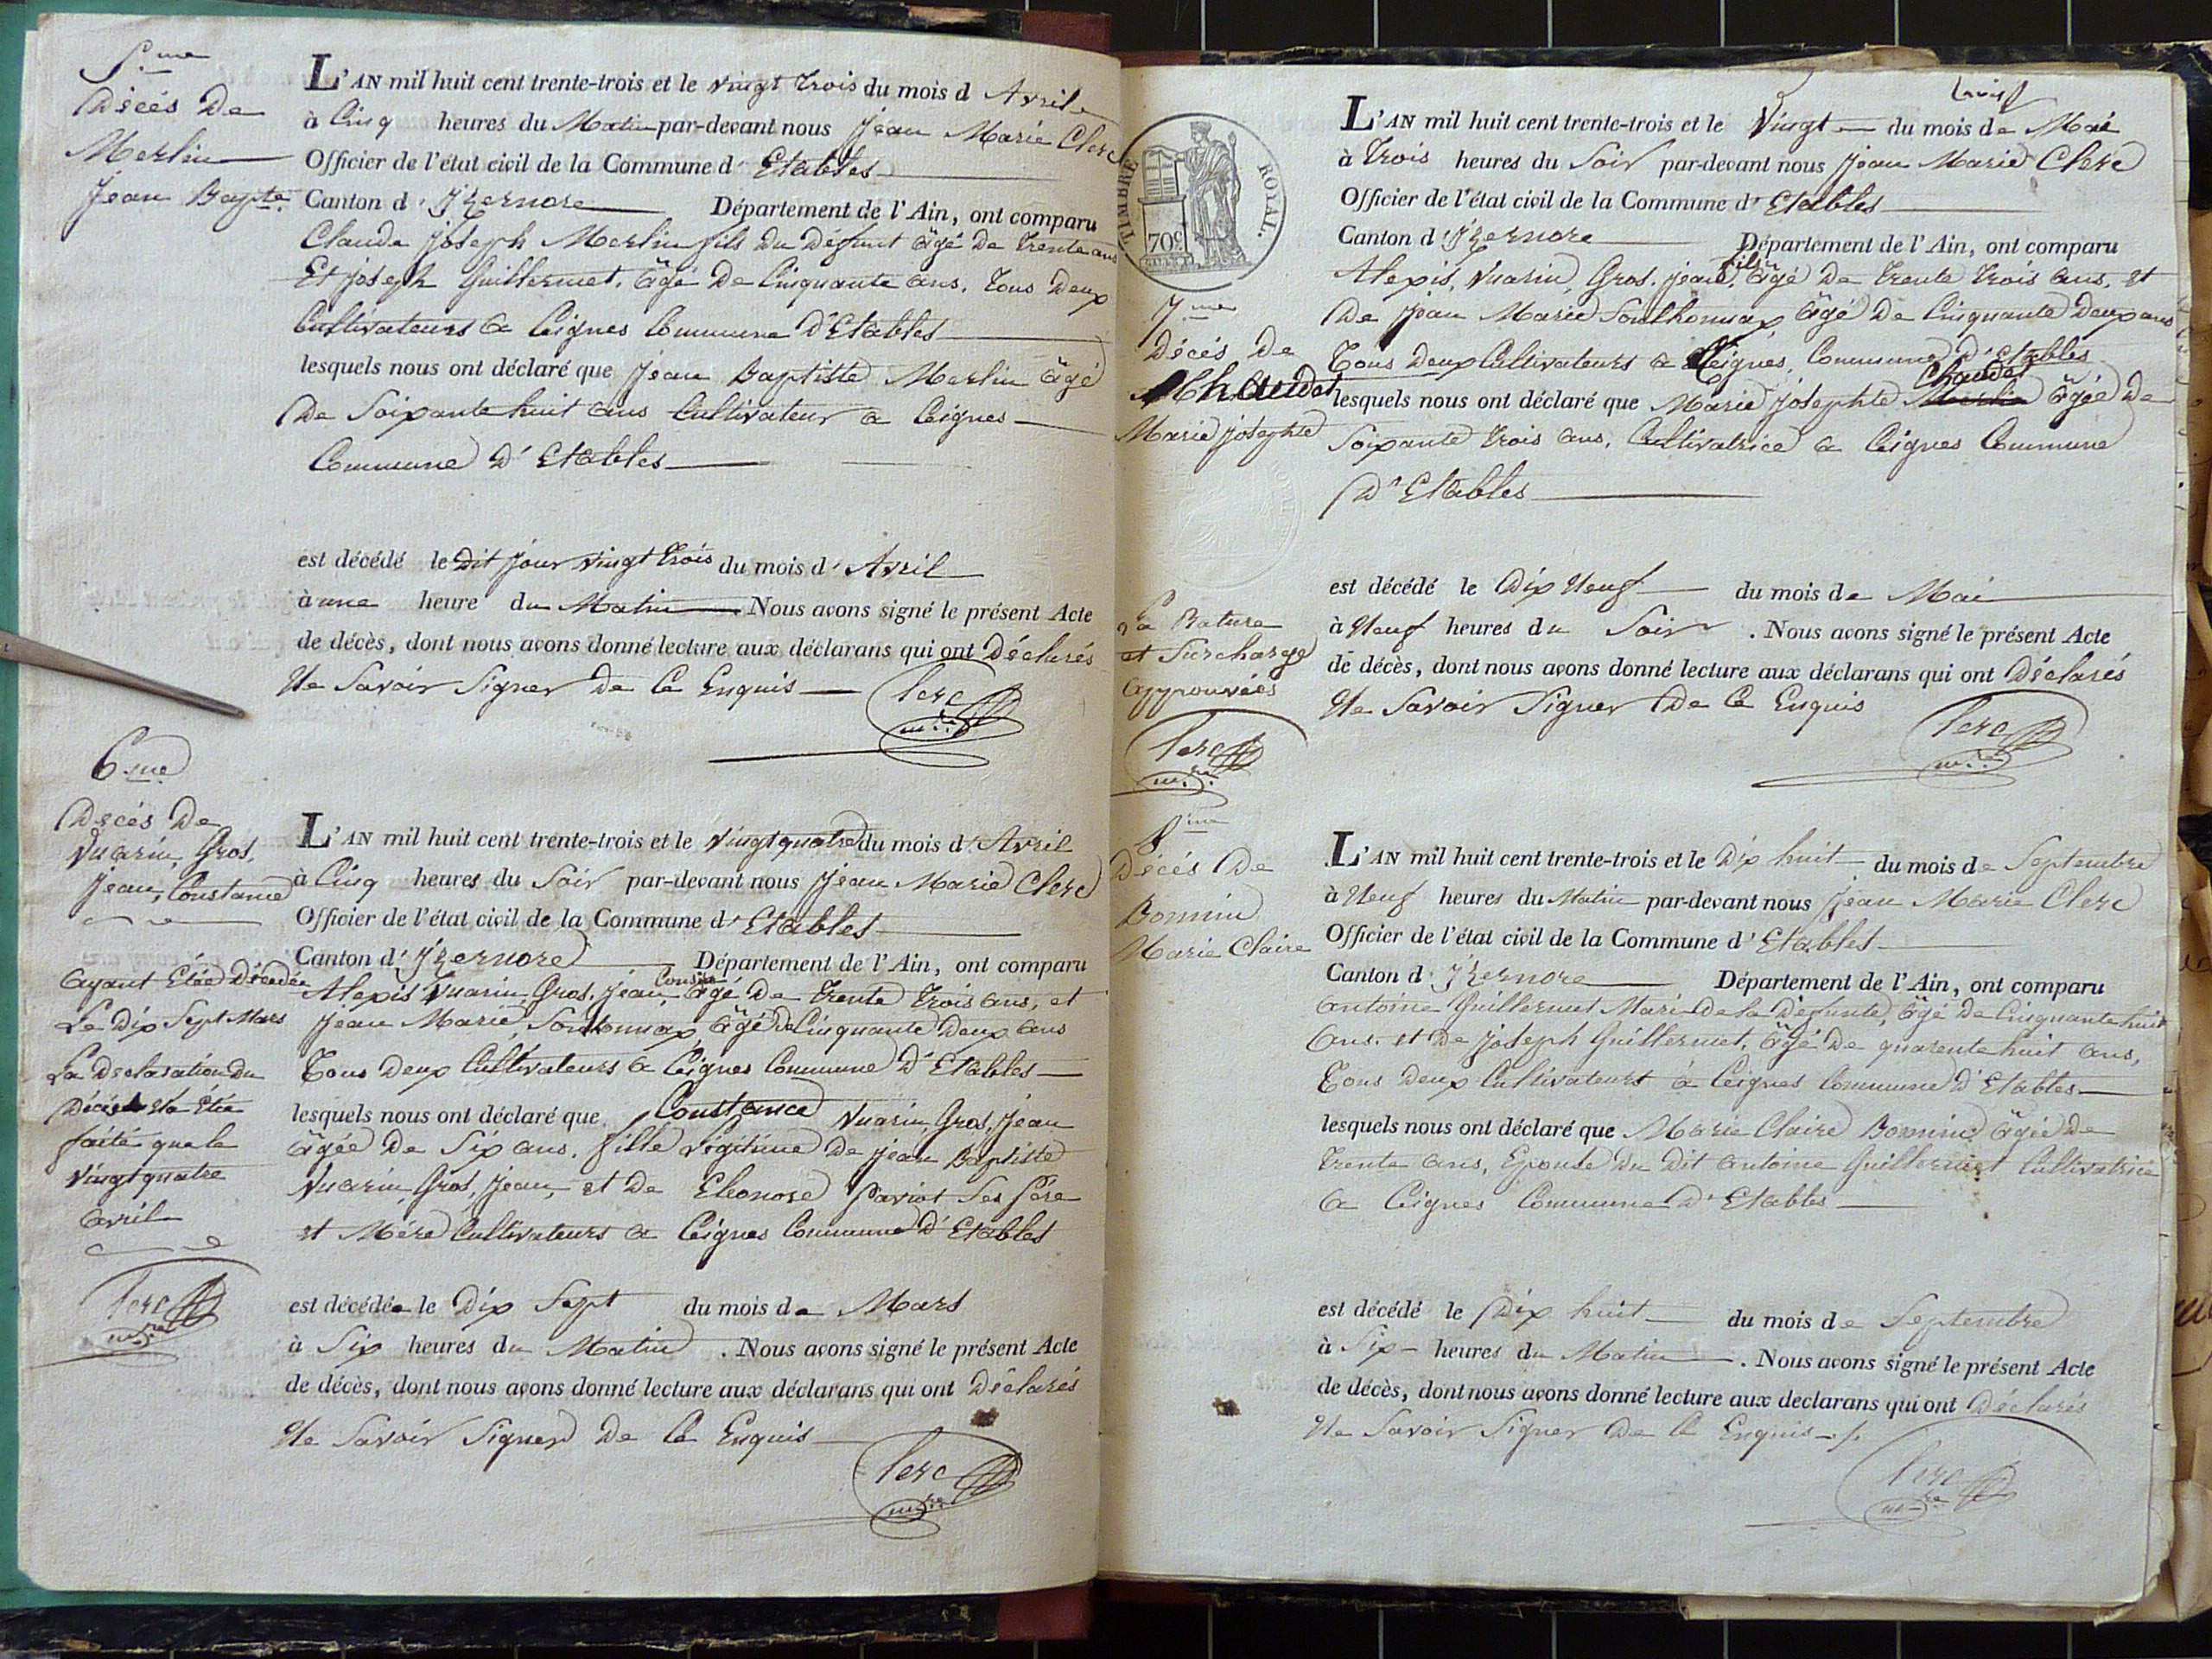 5.me
Décés De
Merlin
Jean Bapte.
L'AN mil huit cent trente-trois et le vingt trois du mois d Avril
à Cinq heures du Matin par-devant nous Jean Marie Clerc
Officier de l'état civil de la Commune d' Etables
Canton d' Izernore Département de l'Ain, ont comparu
Claude Joseph Merlin fils du Défunt âgé De trente ans
Et joseph Guillermet, âgé De Cinquante ans, Tous Deux
Cultivateurs a Ceignes Commune D'Etables
lesquels nous ont déclaré que Jean Baptiste Merlin âgé
De Soixante huit ans Cultivateur a Ceignes
Commune D'Etables
est décédé le Dit jour vingt trois du mois d' Avril
à une heure du Matin. Nous avons signé le présent Acte
de décès, dont nous avons donné lecture aux déclarans qui ont Déclarés
Ne Savoir Signer De Ce Enquis
Clerc
m.re
6.me
Décés De
Vuarin, Gros,
Jean, Constance
ayant Etée Décedée
Le Dix Sept Mars
La Declaration Du
Décés
faite que le
vingt quatre
avril
Clerc
m.re
L'AN mil huit cent trente-trois et le vingt quatre du mois d' Avril
à Cinq heures du Soir par-devant nous Jean Marie Clerc
Officier de l'état civil de la Commune d' Etables
Canton d' Izernore Département de l'Ain, ont comparu
Alexis Vuarin, Gros, Jean, âgé De trente trois ans, et
Jean Marie Sonthonnax, âgé De Cinquante Deux ans
Tous Deux Cultivateurs a Ceignes Commune D'Etables
lesquels nous ont déclaré que Constance Vuarin, Gros, Jean
âgée De Six ans, fille Légitime De Jean Baptiste
Vuarin, Gros, Jean, et De Eleonore Paviot Ses Père
et Mère Cultivateurs a Ceignes Commune D'Etables
est décédée le Dix Sept du mois de Mars
à Six heures du Matin. Nous avons signé le présent Acte
de décès, dont nous avons donné lecture aux déclarans qui ont Déclarés
Ne Savoir Signer De Ce Enquis
Clerc
m.re
TIMBRE ROYAL.
70c
7.me
Décés De
Chaudet
Marie Josephte
La Rature
et Surcharge
approuvées
Clerc
m.re
L'AN mil huit cent trente-trois et le Vingt du mois de Mai
à trois heures du Soir par-devant nous Jean Marie Clerc
Officier de l'état civil de la Commune d' Etables
Canton d' Izernore Département de l'Ain, ont comparu
fils
Alexis, Vuarin, Gros, Jean, âgé De trente trois ans, et
De Jean Marie Sonthonnax âgé De Cinquante Deux ans
Tous Deux Cultivateurs a Ceignes, Commune D'Etables
Chaudet
lesquels nous ont déclaré que Marie Josephte Merlin âgée De
Soixante trois ans, Cultivatrice a Ceignes Commune
D'Etables
est décédé le Dix Neuf du mois de Mai
à Neuf heures du Soir. Nous avons signé le présent Acte
de décès, dont nous avons donné lecture aux déclarans qui ont Déclarés
Ne Savoir Signer De Ce Enquis
Clerc
m.re
8.me
Décés De
Bonnin
Marie Claire
L'AN mil huit cent trente-trois et le Dix huit du mois de Septembre
à Neuf heures du Matin par-devant nous Jean Marie Clerc
Officier de l'état civil de la Commune d' Etables
Canton d' Izernore Département de l'Ain, ont comparu
Antoine Guillermet Mari De la Défunte, âgé De Cinquante huit
ans, et De Joseph Guillermet, âgé De quarente huit ans,
Tous Deux Cultivateurs à Ceignes Commune D'Etables
lesquels nous ont déclaré que Marie Claire Bonnin âgée De
trente ans, Epouse Du Dit Antoine Guillermet Cultivatrice
a Ceignes Commune D'Etables
est décédé le Dix huit du mois de Septembre
à Six heures du Matin. Nous avons signé le présent Acte
de décès, dont nous avons donné lecture aux declarans qui ont Déclarés
Ne Savoir Signer De Ce Enquis
Clerc
m.re